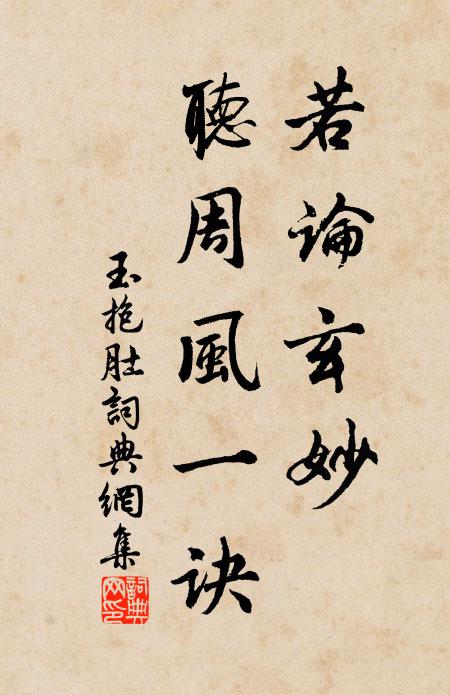 若論玄妙
聽周風一訣
玉抱肚詞典網集
詞典網印